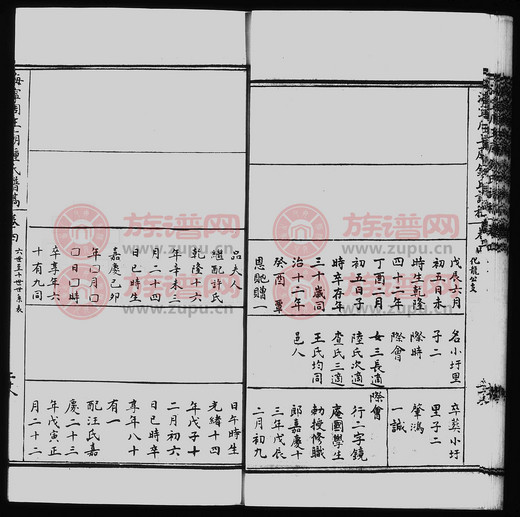 化龍公支
戊辰六月
初五日未
時生乾隆
四十二年
丁酉二月
初五日子
時卒存年
三十歲同
治十二年
癸酉覃
恩貤贈一
名小圩里
子二
際時
際會
女三長適
陸氏次適
查氏三適
王氏均同
邑人
卒葬小圩
里子二
肇鴻
一誠
際會
行二字鏡
庵國學生
勅授修職
郎嘉慶十
三年戊辰
二月初九
品夫人
繼配許氏
乾隆十六
年辛未三
月二十四
日巳時生
嘉慶己卯
年口月口
日口時
卒享年六
十有九同
日午時生
光緒十四
年戊子十
二月初六
日巳時卒
享年八十
有一
配汪氏嘉
慶二十三
年戊寅正
月二十二
氏譜稿
族谱网
www.zupu.cn
族谱网
www.zupu.cn